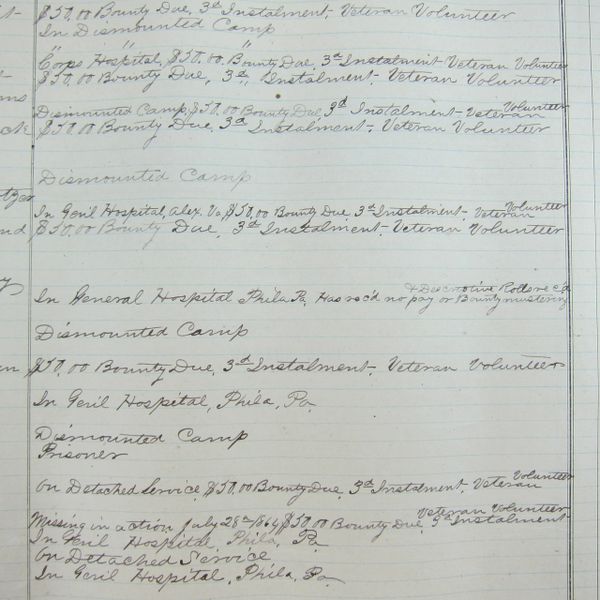 $50.00 Bounty Due, 3d Instalment, Veteran Volunteer
In Dismounted Camp
" "
Corps Hospital, $50.00 Bounty Due, 3d Instalment Veteran Volunteer
$50.00 Bounty Due, 3d, Instalment, Veteran Volunteer
Dismounted Camp, $50.00 Bounty Due, 3d Instalment - Veteran Volunteer
$50.00 Bounty Due, 3d Instalment, Veteran Volunteer
Dismounted Camp
In Genl Hospital, Alex. Va, $50.00 Bounty Due, 3d Instalment - Veteran Volunteer
$50.00 Bounty Due, 3d Instalment - Veteran Volunteer
& Descriptive Rolls rec'd
In General Hospital Phila Pa. Has rec'd no pay or Bounty mustering
Dismounted Camp
$50.00 Bounty Due, 3d Instalment, Veteran Volunteer
In Genl Hospital, Phila, Pa.
Dismounted Camp
Prisoner
On Detached Service, $50.00 Bounty Due, 3d Instalment, Veteran Volunteer
Veteran Volunteer
Missing in action July 28th 1864, $50.00 Bounty Due, 3d Instalment
In Genl Hospital, Phila, Pa
On Detached Service
In Genl Hospital, Phila, Pa.